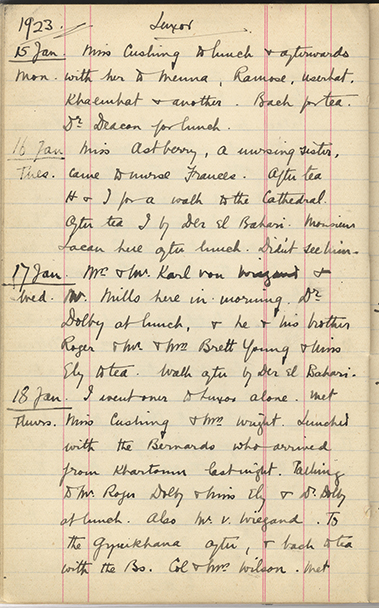 1923. Luxor
15 Jan. Miss Cushing to lunch & afterwards
Mon. with her to Menna, Ramose, Userhat,
Khaemhat & another. Back for tea.
Dr Deacon for lunch.
16 Jan. Miss Astberry, a nursing sister,
Tues. came to nurse Frances. After tea
H & I for a walk to the Cathedral.
After tea I by Der El Bahari. Monsieur
Lacau here after lunch. Didn't see him.
17 Jan. Mrs & Mr. Karl von Wiegand &
Wed. Mr. Mills here in morning. Dr
Dolby at lunch, & he & his brother
Roger & Mr & Mrs Brett Young & Miss
Ely to tea. Walk after by Der El Bahari.
18 Jan. I went over to Luxor alone. Met
Thurs. Miss Cushing & Mrs Wright. Lunched
with the Bernards who arrived
from Khartoum last night. Talking
to Mr. Roger Dolby & Miss Ely & Dr. Dolby
at lunch. Also Mr. v. Wiegand. To
the Gymkhana after, & back to tea
with the Bs. Col & Mrs Wilson. Met